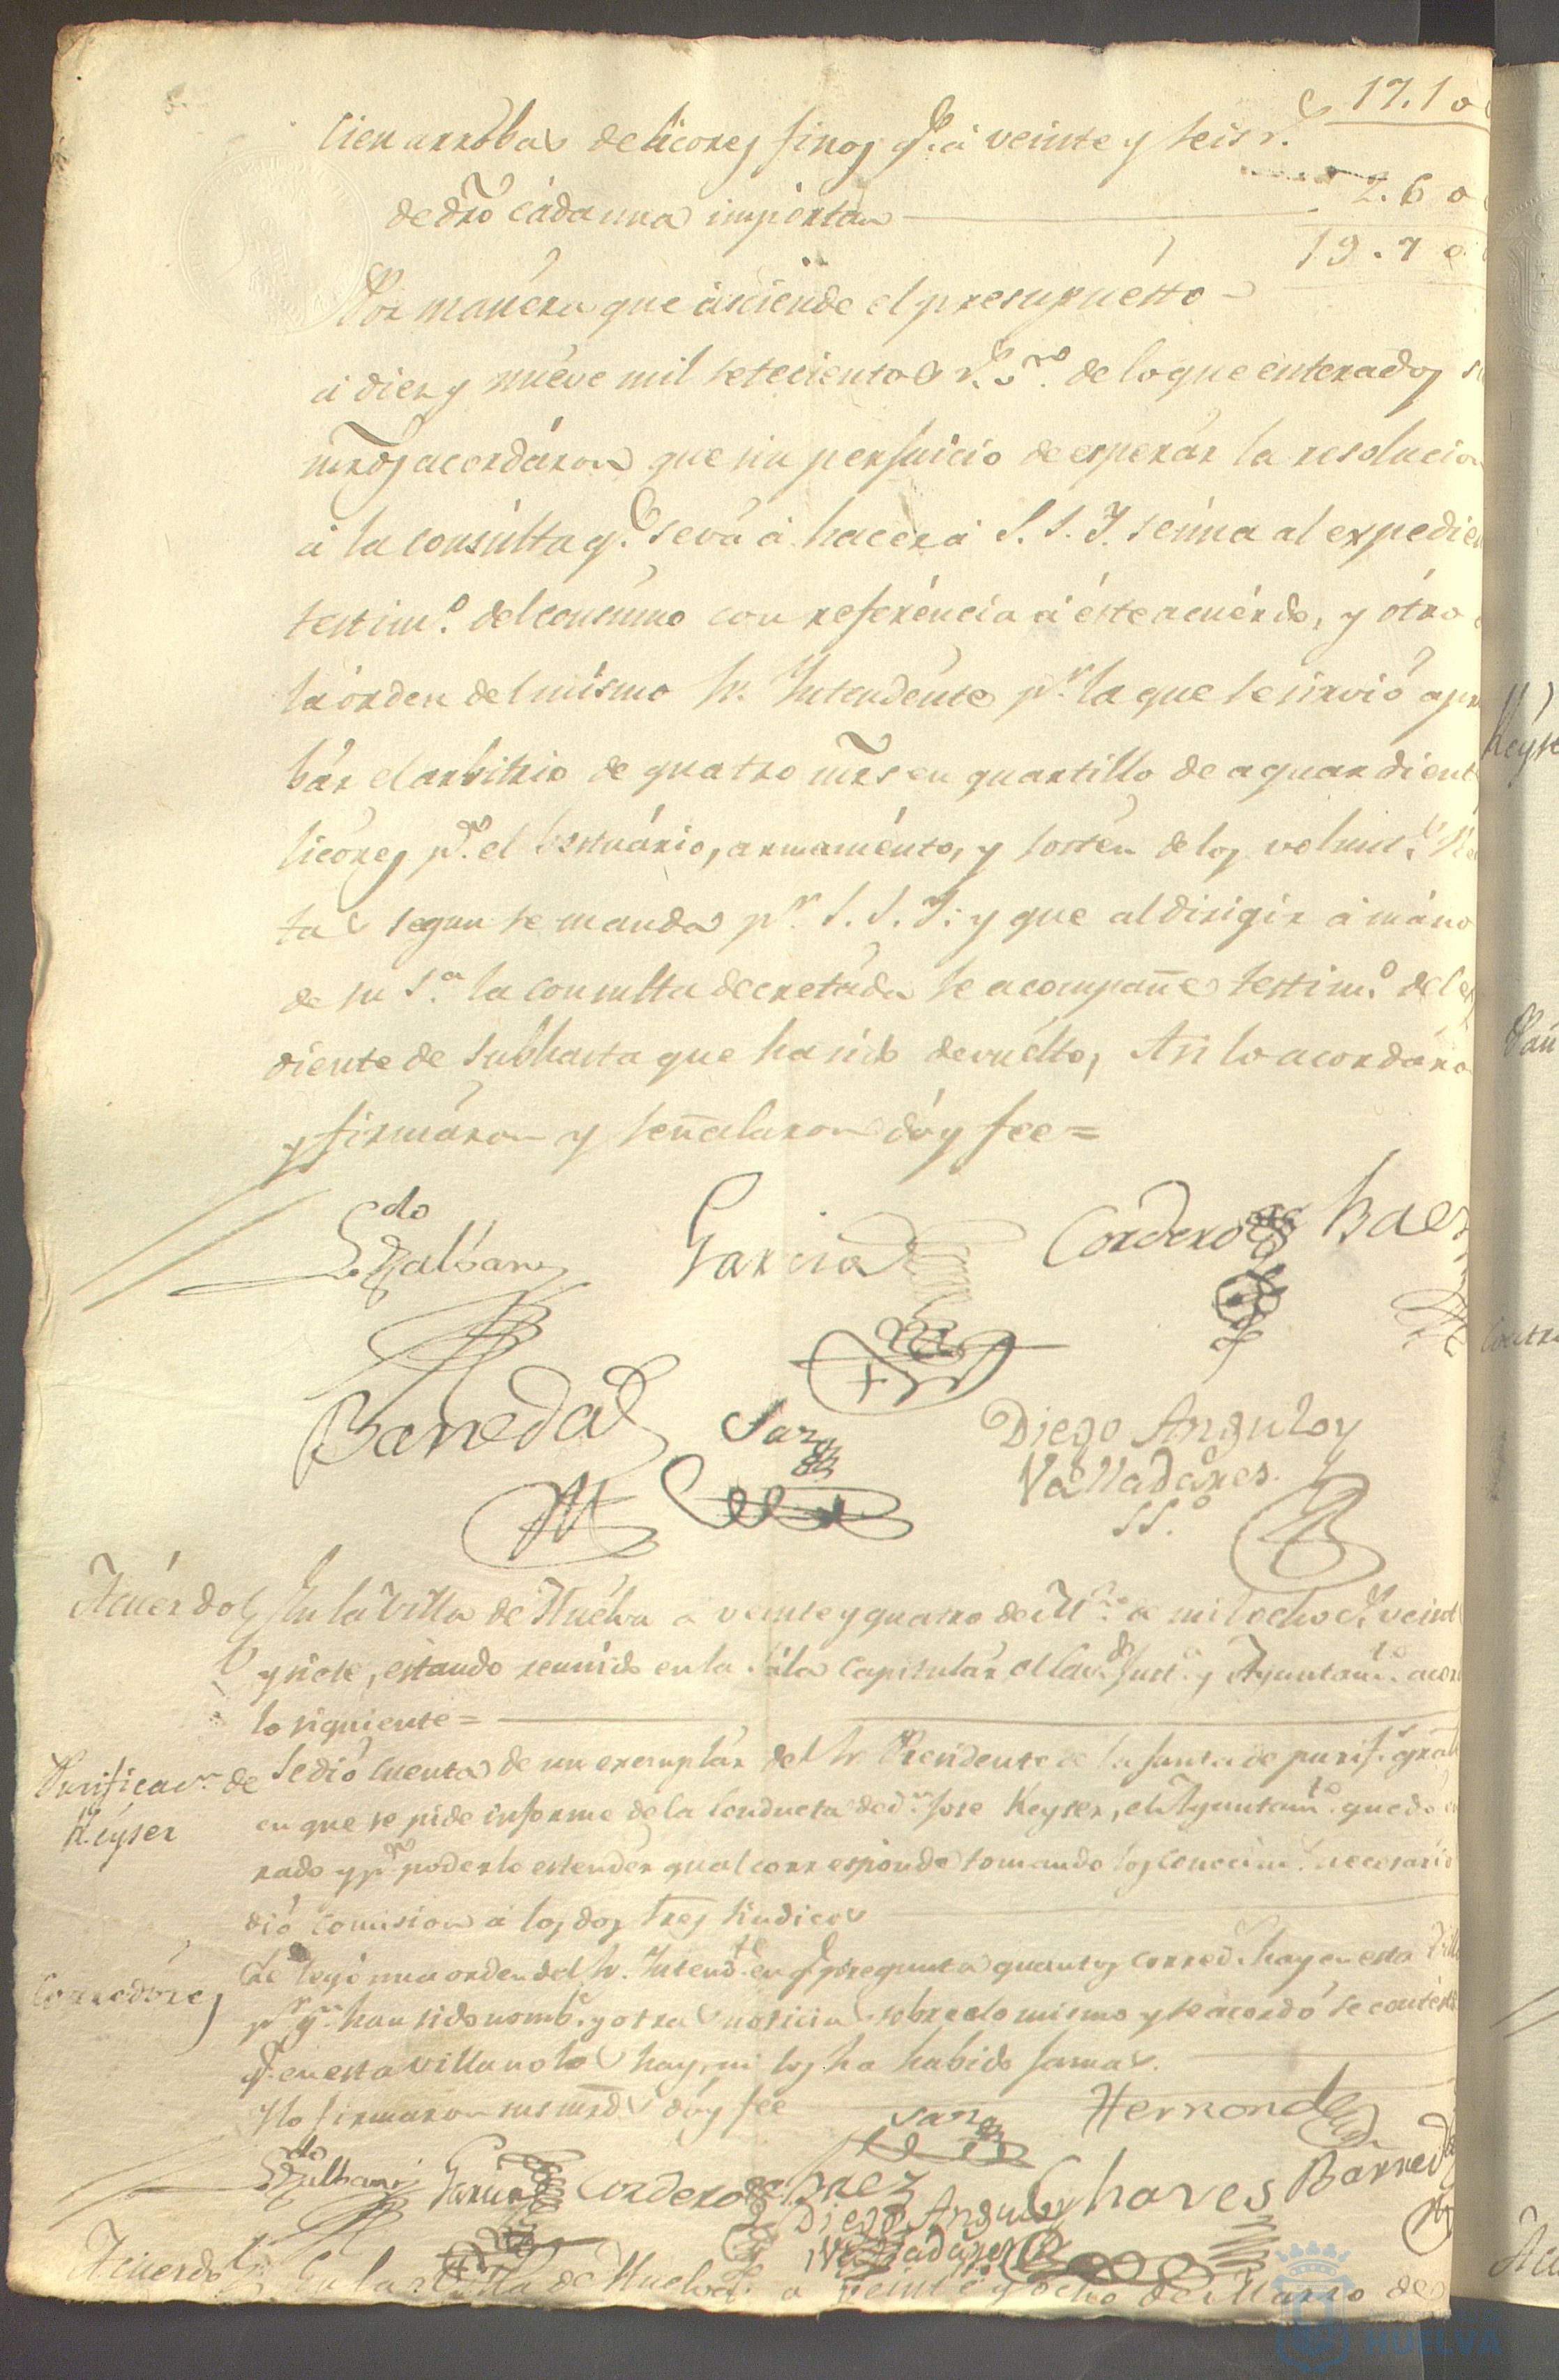 17.10
Cien arrobas de licores finos q.e á veinte y seis r.s
de dro cada una importan 2.60
19.70
Por manera que asciende el presupuesto
á diez y nueve mil setecientos r.s v.on de lo que enterados s
mrds acordáron que sin perjuicio de esperár la resolucion
á la consúlta q.e se vá á hacer á S. S. Y. se úna al expedien
testim.o del consumo con referéncia á éste acuérdo, y ótro
la órden del mismo Sr. Intendénte p.r la que se sirvió apro
bár el arbitrio de quatro mrs en quartillo de aguardient
licóres p.a el vestuário, armaménto, y sostén de los volunt.s Rea
tas segun se manda p.r S. S. Y. y que al dirigir á máno
de su S.a la consulta decretáda se acompañe testim.o del es
diente de subhasta que ha sido devuélto, Asi lo acordáro
y firmáron y señalaron dóy fee =
L.do Galban
Garcia
Cordero
Baez
Barreda
Sanz
Diego Angulo y
Valladáres
SS.o
Acuérdo En la Villa de Huélva á veinte y quatro de M.zo de mil ocho c.s veint
y siete, estando reunido en la Sála Capitulár el Cav.do Just.a y Ayuntam.to acor
lo siguiente =
Purificac.n de Se dió cuenta de un exemplár del Sr. Presidente de la Junta de purif.s
Keyser en que se pide informe de la Conducta de d.n Jose Keyser, el Ayuntam.to quedó en
rado y p.a poderlo estender qual corresponde tomando los conocim.s necesario
dió comision á los dos Sres Sindicos
Corredóres Se leyó una orden del Sr. Intend.te en q.e pregunta quantos corred.s hay en esta Villa
p.r q.n han sido nomb.s y otras noticias sobre lo mismo y se acordó se contéste
q.e en esta villa no los hay, ni los ha habido jamas.
Y lo firmaron sus mrds dóy fee
Sanz
Hernandez
L.do Galban
Garcia
Cordero
Baez
Chaves
Barreda
Diego Angulo y
Valladáres
Acuerdo En la Villa de Huelva á veinte y ocho de Marzo de
HUELVA
Keyse